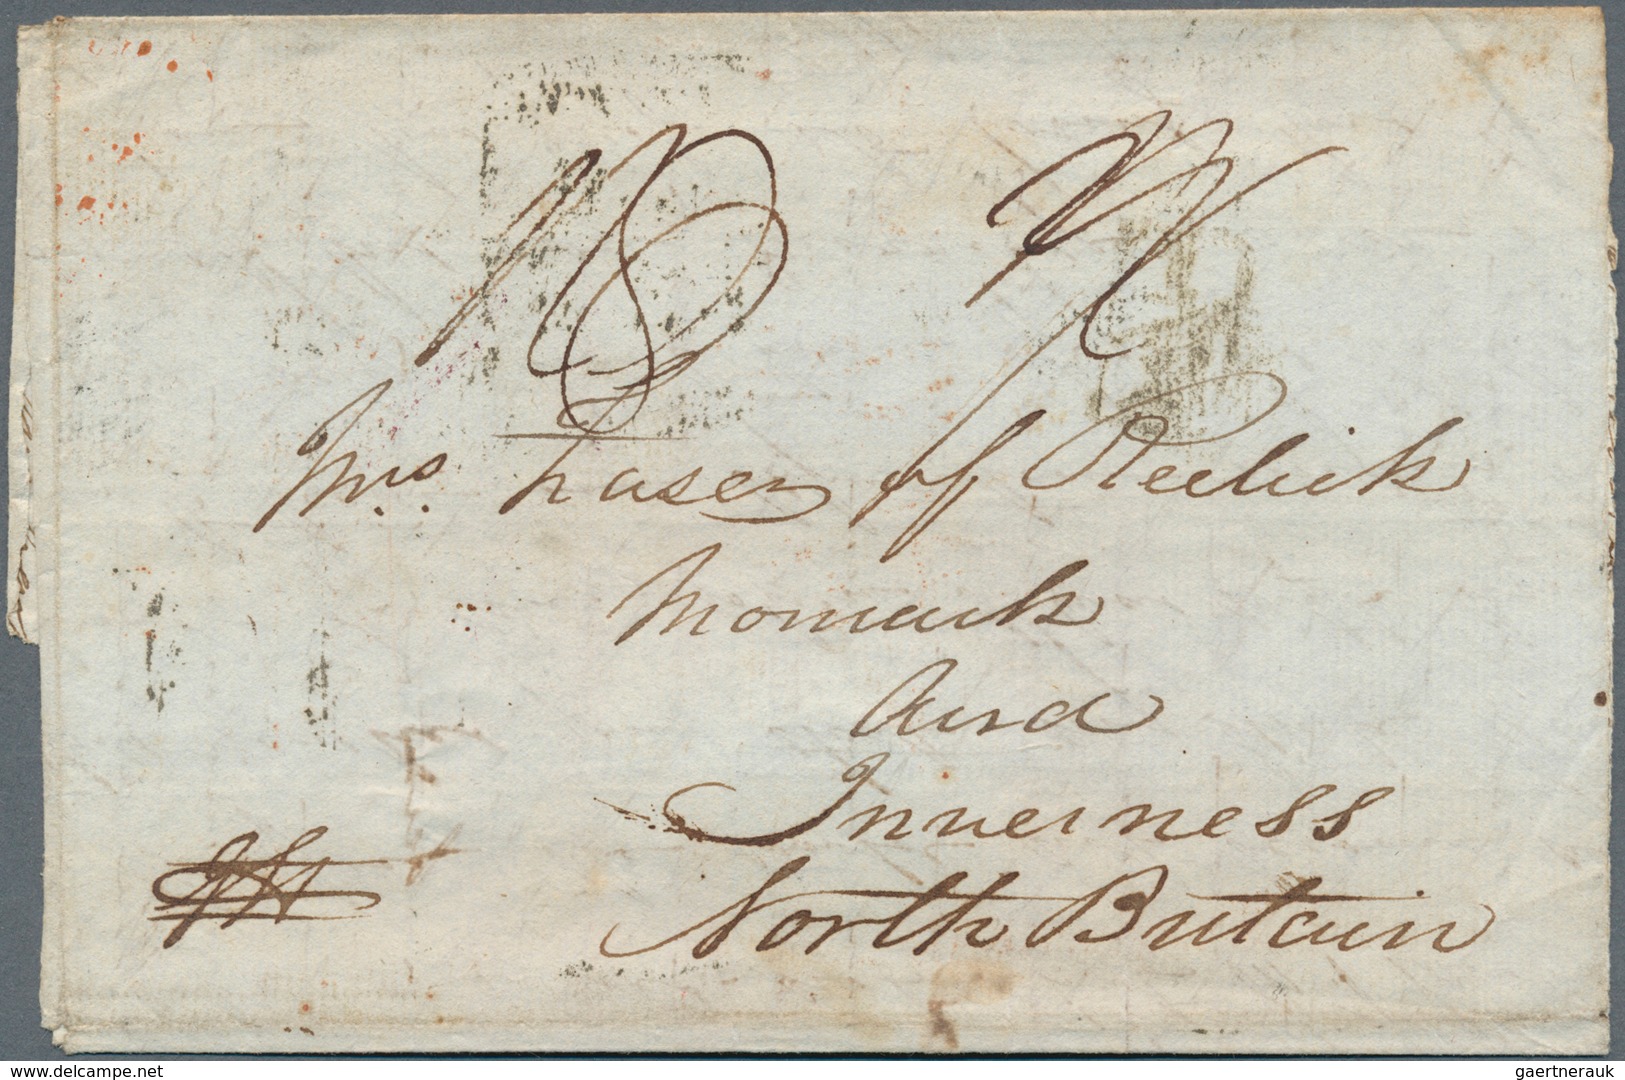 Mrs. Fraser of Reelick
Moniack
Aird
Inverness
North Britain
delcampe.net
gaertnerauk